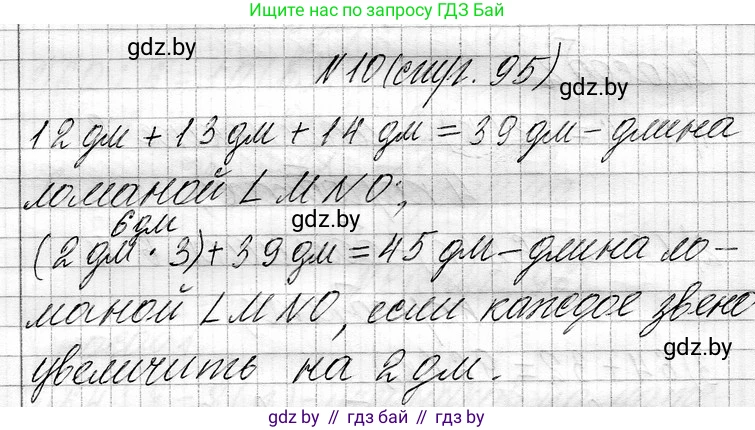 Ищите нас по запросу ГДЗ Бай
gdz.by
№10 (стр. 95)
gdz.by
12 дм + 13 дм + 14 дм = 39 дм - длина
ломаной LMNO;
6 дм
gdz.by
(2 дм · 3) + 39 дм = 45 дм - длина ло-
маной LMNO, если каждое звено
gdz.by
увеличить на 2 дм.
gdz.by // гдз бай // gdz.by